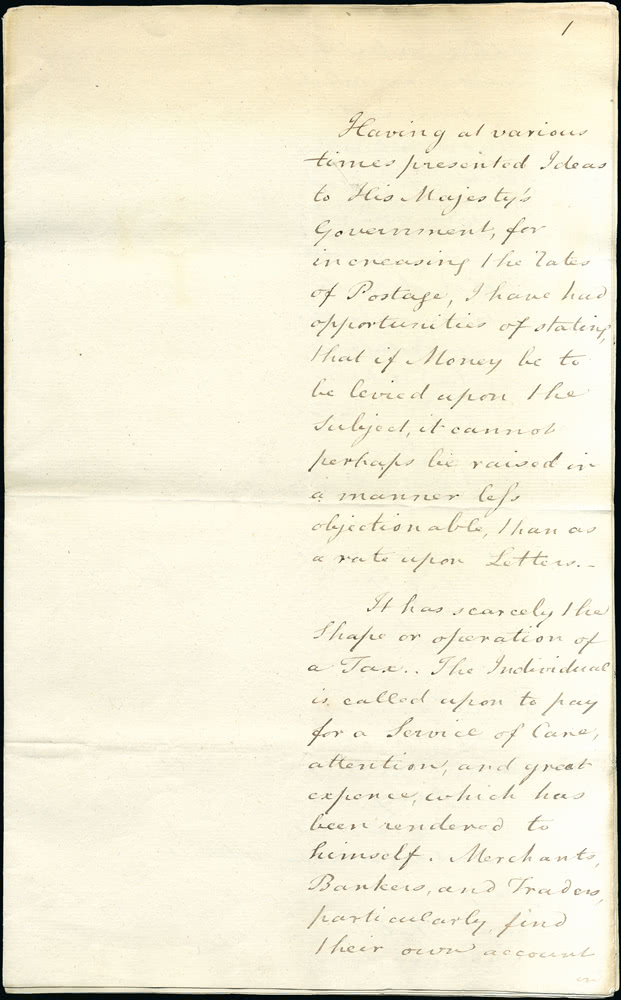 1
Having at various
times presented Ideas
to His Majesty's
Government, for
increasing the rates
of Postage, I have had
opportunities of stating,
that if Money be to
be levied upon the
Subject, it cannot
perhaps be raised in
a manner leſs
objectionable, than as
a rate upon Letters.-
It has scarcely the
Shape or operation of
a Tax.. The Individual
is called upon to pay
for a Service of Care,
attention, and great
expence, which has
been rendered to
himself. Merchants,
Bankers, and Traders,
particularly, find
their own account
in